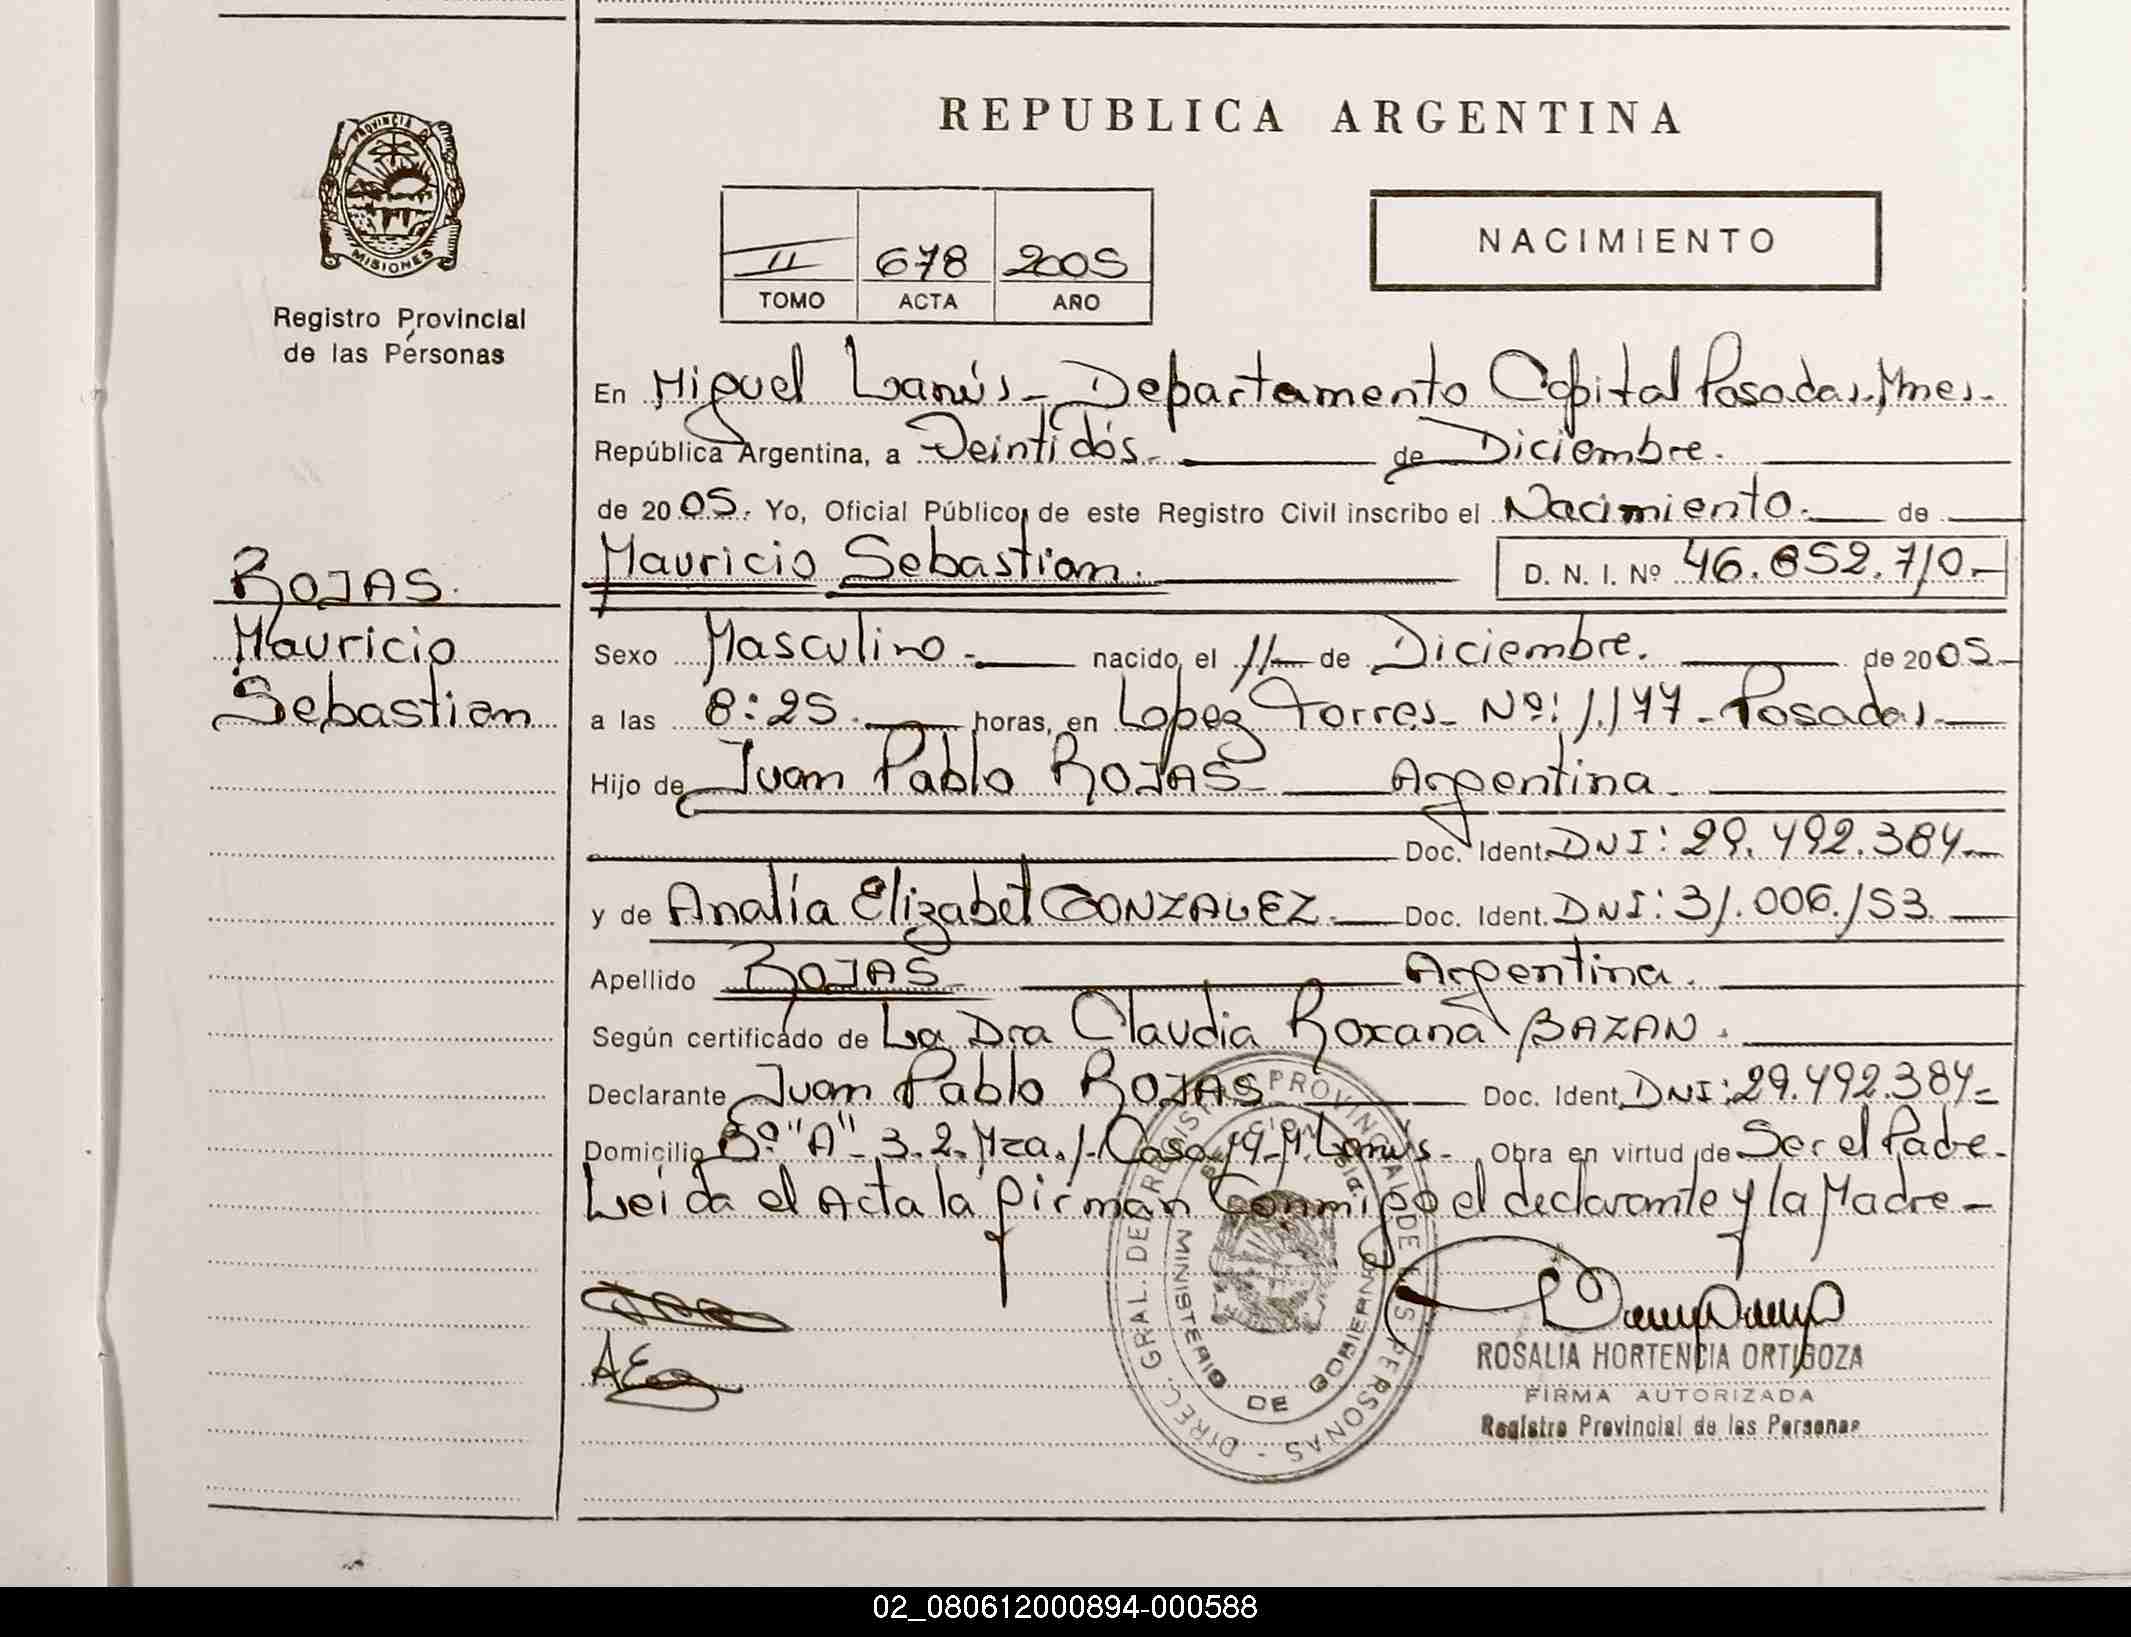 REPUBLICA ARGENTINA
PROVINCIA DE
MISIONES
Registro Provincial
de las Personas
II 678 2005
TOMO ACTA AÑO
NACIMIENTO
En Miguel Lanús - Departamento Capital Posadas, Mnes.
República Argentina, a Veintidós. de Diciembre.
de 2005. Yo, Oficial Público, de este Registro Civil inscribo el Nacimiento. de
Mauricio Sebastian. D. N. I. Nº 46.652.710.-
ROJAS.
Mauricio
Sebastian
Sexo Masculino.- nacido el 11 de Diciembre. de 2005.
a las 8:25. horas, en Lopez Torres Nº: 1.177 - Posadas.
Hijo de Juan Pablo ROJAS Argentina.
Doc. Ident. DNI: 29.492.384.
y de Analía Elizabet GONZALEZ. Doc. Ident. DNI: 31.006.153.
Apellido ROJAS Argentina.
Según certificado de La Dra Claudia Roxana BAZAN.
Declarante Juan Pablo ROJAS Doc. Ident. DNI: 29.492.384.-
Domicilio Bº "A" 3.2. Mza. 1. Casa 19. M. Lanús. Obra en virtud de Ser el Padre.
Leida el Acta la firman Conmigo el declarante y la Madre -
DIREC. GRAL. DE REGISTRO PROVINCIAL DE LAS PERSONAS -
MINISTERIO DE GOBIERNO
ROSALIA HORTENCIA ORTIGOZA
FIRMA AUTORIZADA
Registro Provincial de las Personas
02_080612000894-000588